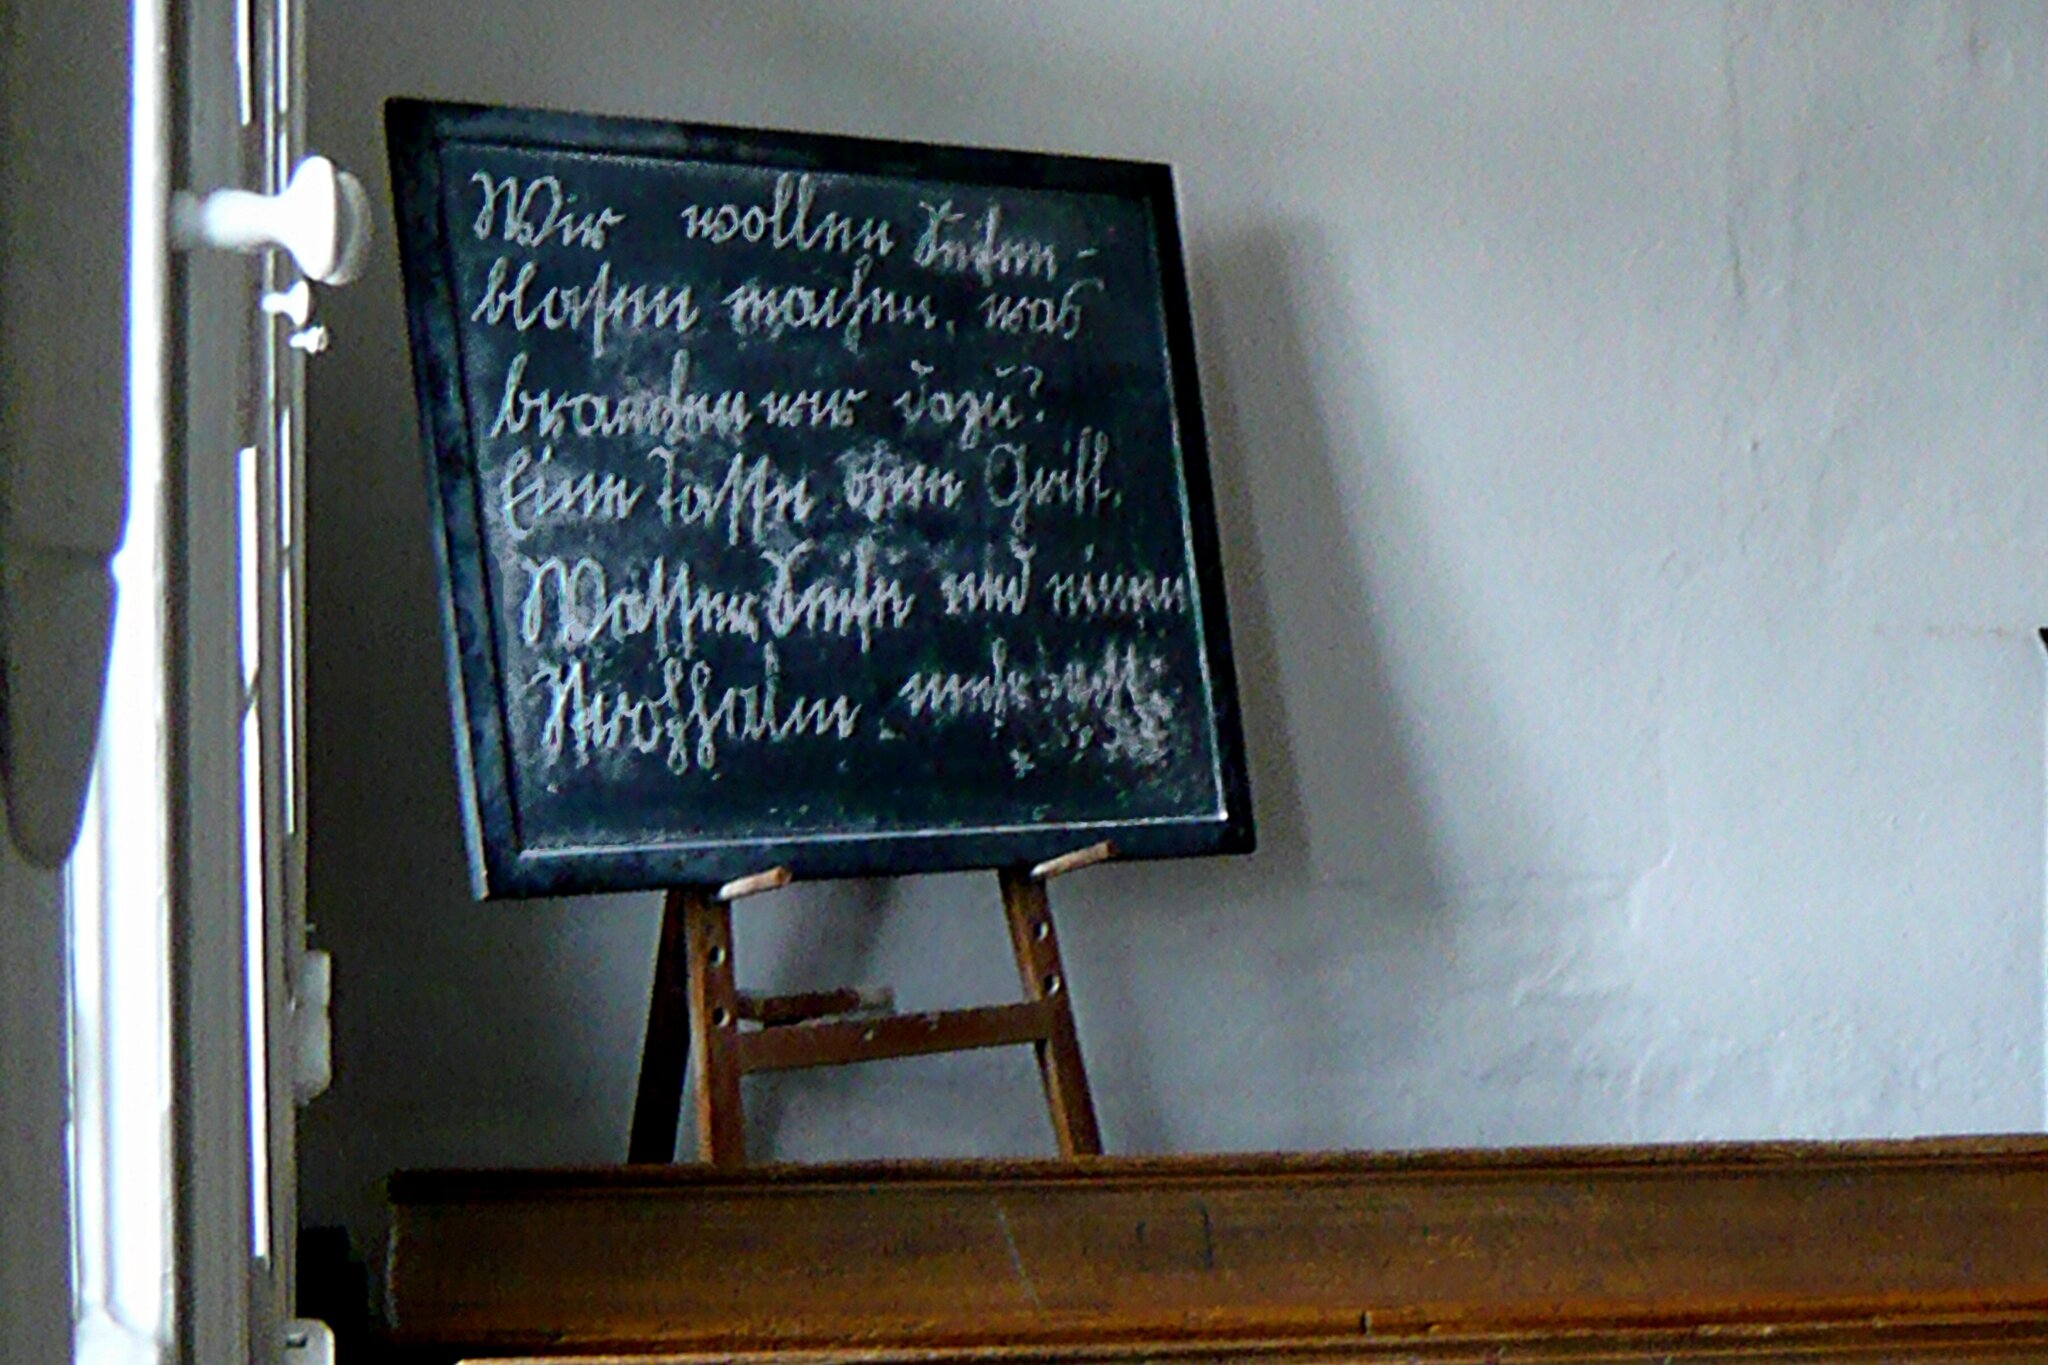 Wir wollen Seifen-
blasen machen, was
brauchen wir dazu?
Eine Tasse ohne Griff,
Wasser, Seife und einen
Strohhalm mehr nicht.